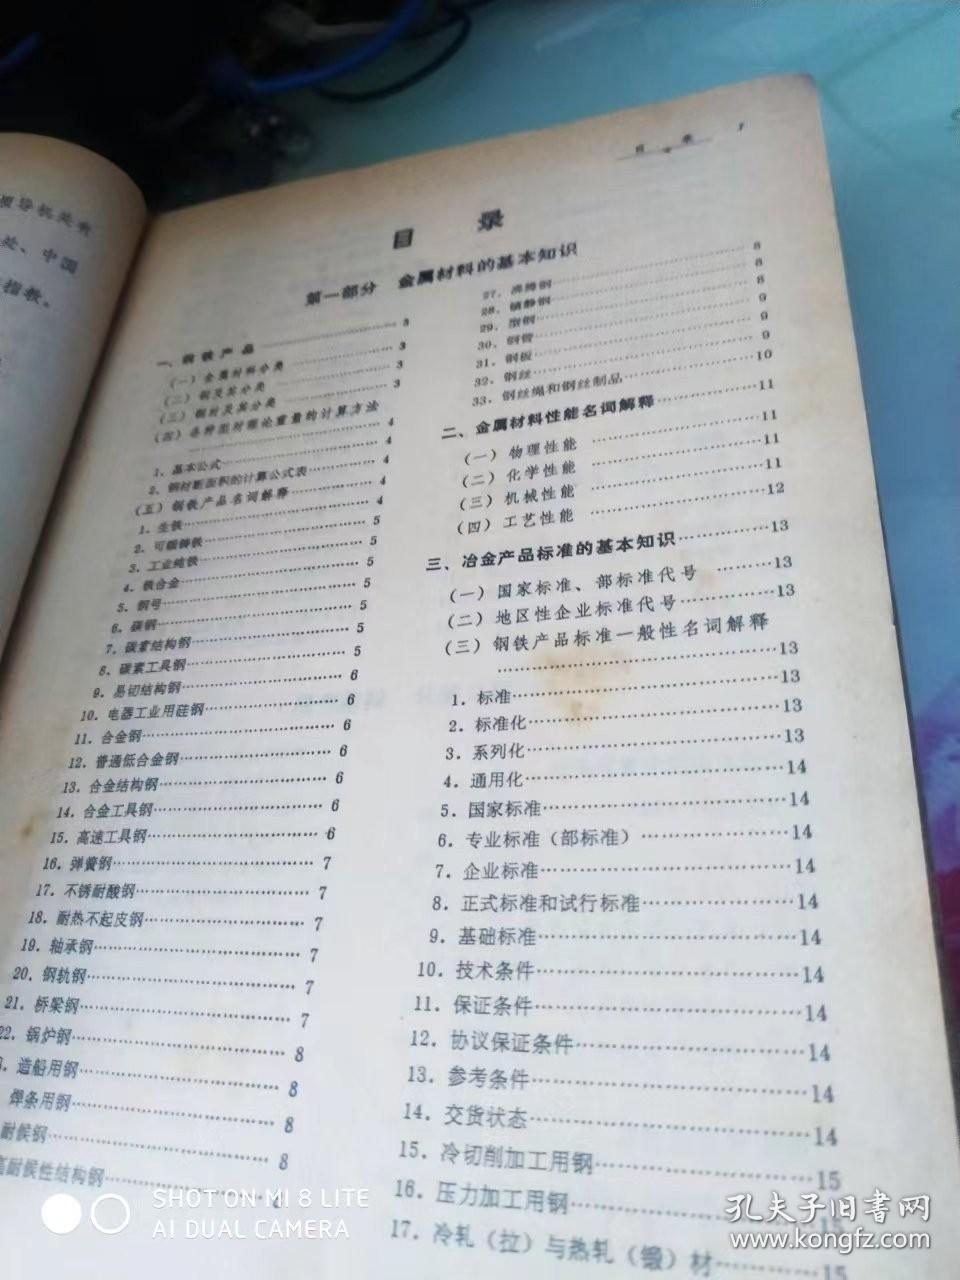 处、中国
指教。
目 录 1
目 录
第一部分 金属材料的基本知识
一、钢铁产品 3
(一)金属材料分类 3
(二)钢及其分类 3
(三)钢材及其分类 3
(四)各种型材理论重量的计算方法
4
1.基本公式 4
2.钢材断面积的计算公式表 4
(五)钢铁产品名词解释 4
1.生铁 4
2.可锻铸铁 5
3.工业纯铁 5
4.铁合金 5
5.钢号 5
6.碳钢 5
7.碳素结构钢 5
8.碳素工具钢 5
9.易切结构钢 6
10.电器工业用硅钢 6
11.合金钢 6
12.普通低合金钢 6
13.合金结构钢 6
14.合金工具钢 6
15.高速工具钢 6
16.弹簧钢 7
17.不锈耐酸钢 7
18.耐热不起皮钢 7
19.轴承钢 7
20.钢轨钢 7
21.桥梁钢 7
22.锅炉钢 8
造船用钢 8
焊条用钢 8
耐候钢 8
高耐候性结构钢 8
27.沸腾钢 8
28.镇静钢 8
29.型钢 8
30.钢管 9
31.钢板 9
32.钢丝 9
33.钢丝绳和钢丝制品 10
二、金属材料性能名词解释 11
(一)物理性能 11
(二)化学性能 11
(三)机械性能 11
(四)工艺性能 12
三、冶金产品标准的基本知识 13
(一)国家标准、部标准代号 13
(二)地区性企业标准代号 13
(三)钢铁产品标准一般性名词解释
13
1.标准 13
2.标准化 13
3.系列化 13
4.通用化 14
5.国家标准 14
6.专业标准(部标准) 14
7.企业标准 14
8.正式标准和试行标准 14
9.基础标准 14
10.技术条件 14
11.保证条件 14
12.协议保证条件 14
13.参考条件 14
14.交货状态 14
15.冷切削加工用钢 15
16.压力加工用钢 15
17.冷轧(拉)与热轧(锻)材 15
SHOT ON MI 8 LITE
AI DUAL CAMERA
孔夫子旧书网
www.kongfz.com